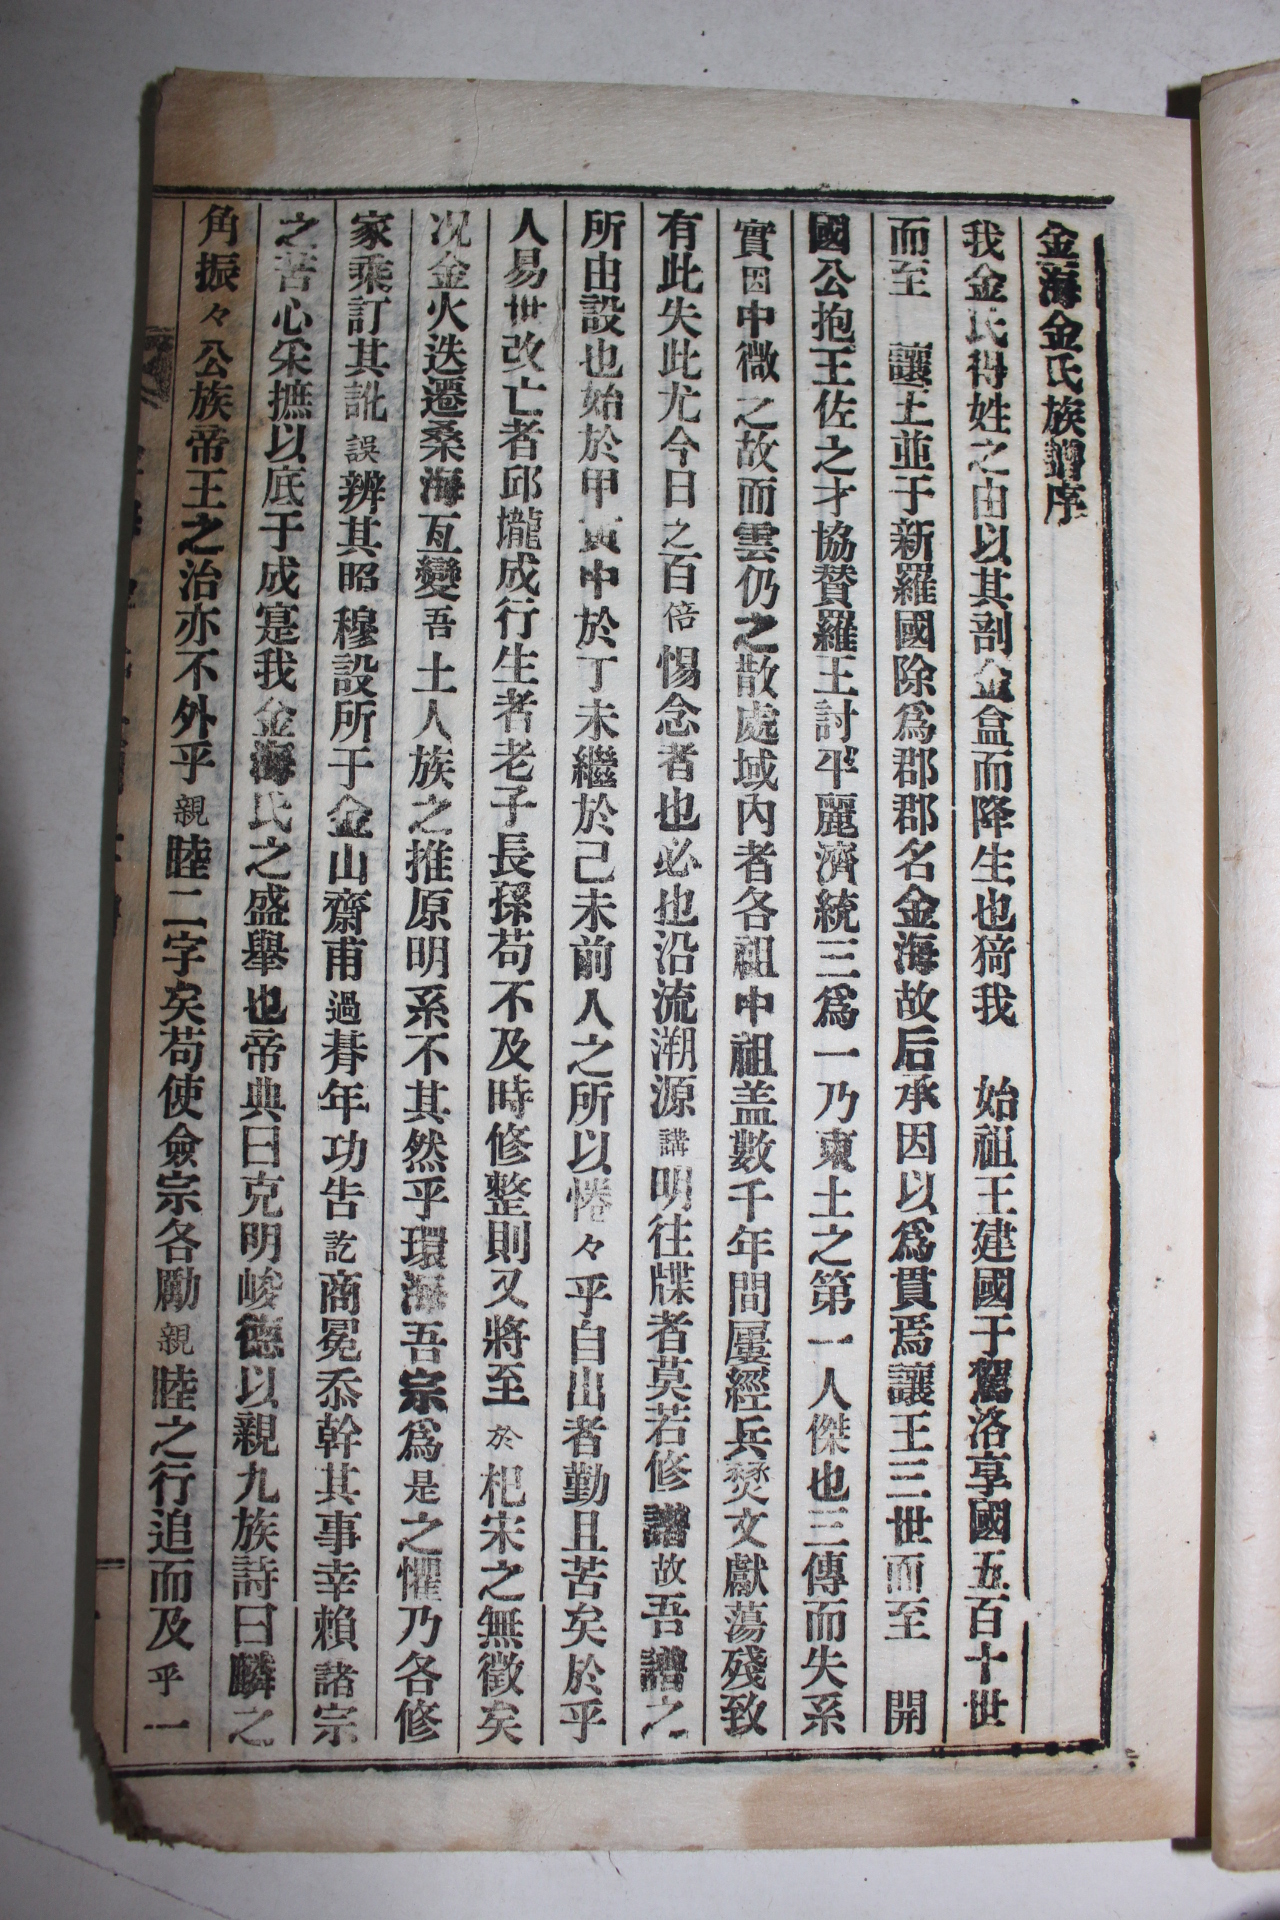 金海金氏族譜序
我金氏得姓之由以其剖金盒而降生也猗我　始祖王建國于駕洛享國五百十世
而至　讓王並于新羅國除爲郡郡名金海故后承因以爲貫焉讓王三世而至　開
國公抱王佐之才協贊羅王討平麗濟統三爲一乃東土之第一人傑也三傳而失系
實因中微之故而雲仍之散處域內者各祖中祖盖數千年間屢經兵燹文獻蕩殘致
有此失此尤今日之百倍惕念者也必也沿流溯源講明往牒者莫若修譜故吾譜之
所由設也始於甲寅中於丁未繼於己未前人之所以惓々乎自出者勤且苦矣於乎
人易世改亡者邱壠成行生者老子長孫苟不及時修整則又將至於杞宋之無徵矣
况金火迭遷桑海亙變吾土人族之推原明系不其然乎環海吾宗爲是之懼乃各修
家乘訂其訛誤辨其昭穆設所于金山齋甫過朞年功告訖商冕忝幹其事幸賴諸宗
之苦心采摭以底于成寔我金海氏之盛擧也帝典曰克明峻德以親九族詩曰麟之
角振々公族帝王之治亦不外乎親睦二字矣苟使僉宗各勵親睦之行追而及乎一